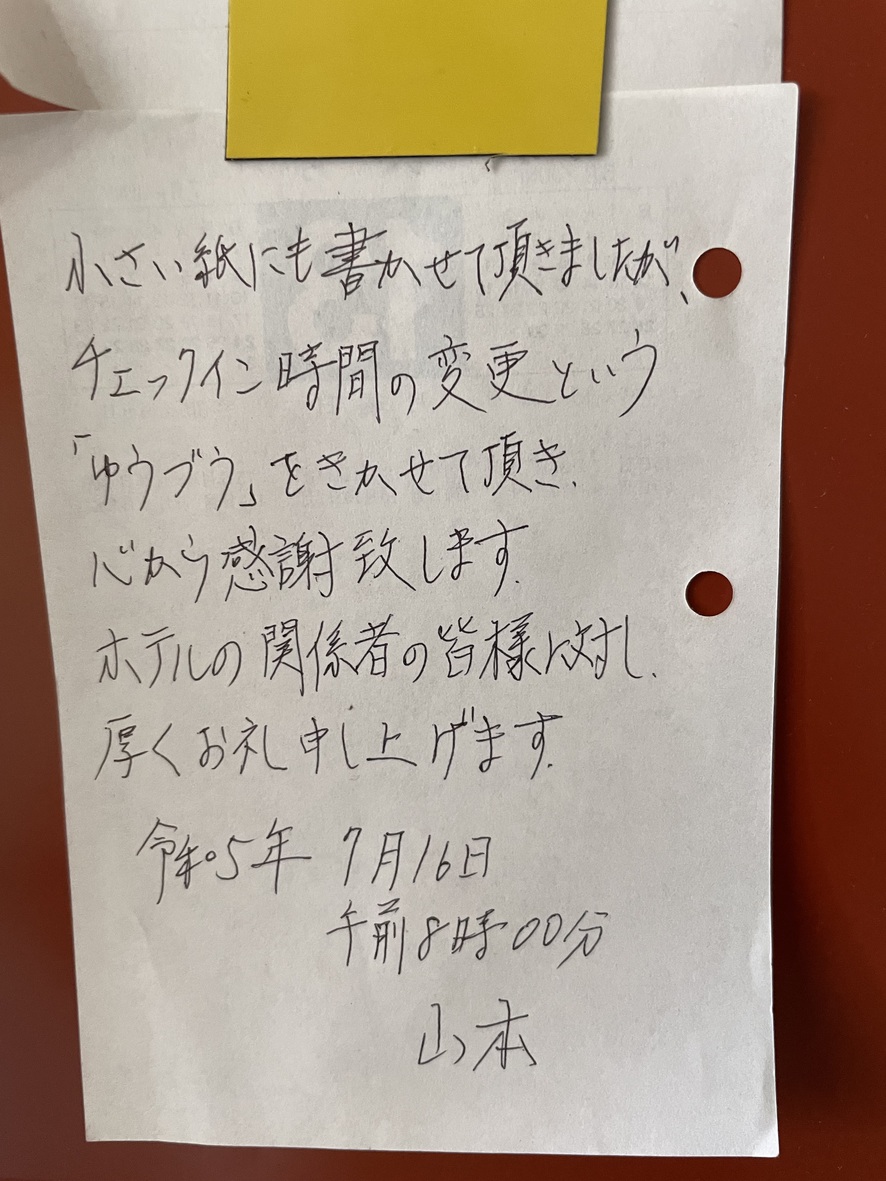 小さい紙にも書かせて頂きましたが、
チェックイン時間の変更という
「ゆうづう」をきかせて頂き、
心から感謝致します。
ホテルの関係者の皆様に対し、
厚くお礼申し上げます。
令和5年 7月16日
午前8時00分
山本